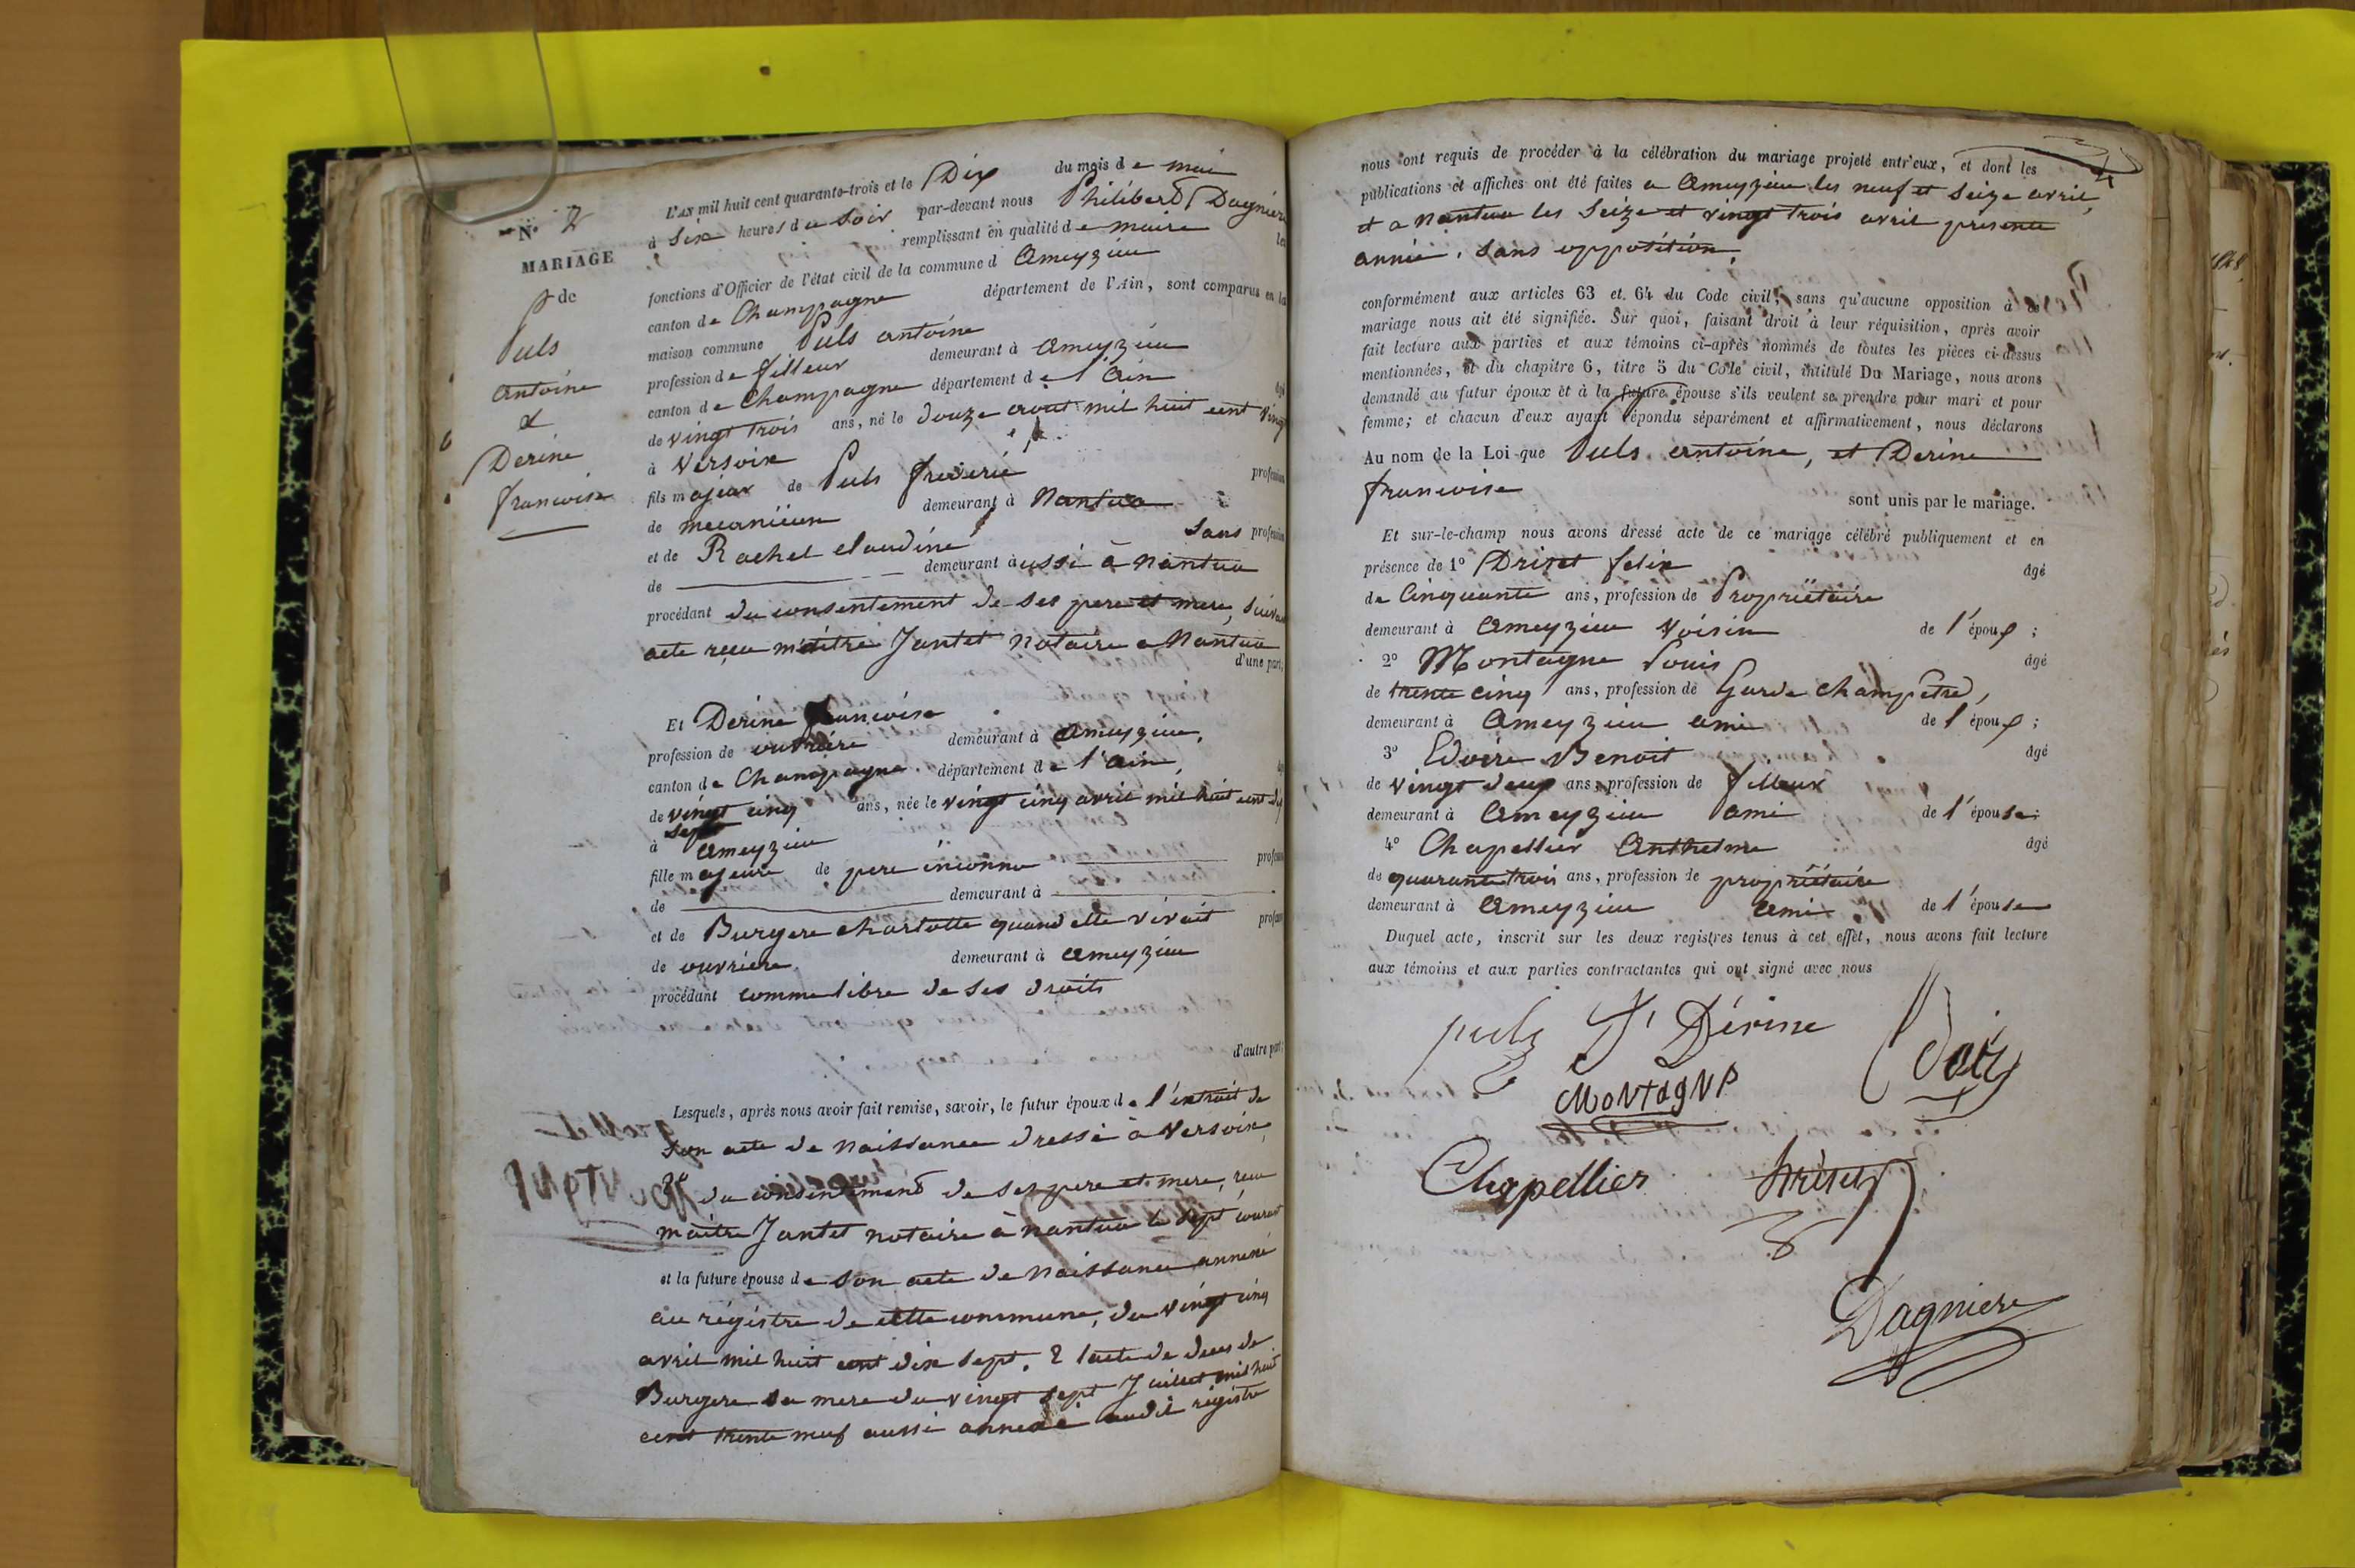 N° 2
MARIAGE
de
Puls
antoine
&
Derine
francoise
L'AN mil huit cent quarante-trois et le Dix du mois de mai
à six heures du soir par-devant nous Philibert Dagniere
remplissant en qualité de maire les
fonctions d'Officier de l'état civil de la commune d ameyzieu
canton de Champagne département de l'Ain, sont comparus en la
maison commune Puls antoine
profession de filleur demeurant à ameyzieu
canton de Champagne département de l'ain âgé
de vingt trois ans, né le douze aout mil huit cent vingt
à Versoix
fils majeur de Puls frederic profession
de mecanicien demeurant à Nantua
et de Rachel claudine sans profession
de demeurant aussi à Nantua
procédant du consentement de ses pere et mere, suivant
acte reçu maitre Jantet Notaire a Nantua
d'une part,
Et Derine francoise
profession de ouvriere demeurant à ameyzieu,
canton de Champagne département de l'ain,
de vingt cinq ans, née le vingt cinq avril mil huit cent dix
sept
à ameyzieu
fille majeure de pere inconnu profession
de demeurant à
et de Burgere charlotte quand elle vivait profession
de ouvriere demeurant à ameyzieu
procédant comme libre de ses droits
d'autre part;
Lesquels, après nous avoir fait remise, savoir, le futur époux de l'extrait de
son acte de naissance dressé à Versoix,
2° du consentement de ses pere et mere, recu
maitre Jantet notaire à nantua le sept courant
et la future épouse de son acte de Naissance annexé
au régistre de cette commune, du vingt cinq
avril mil huit cent dix sept. 2 l'acte de deces de
Burgere sa mere du vingt sept Juillet mil huit
cent trente neuf aussi annexé audit régistre
nous ont requis de procéder à la célébration du mariage projeté entr'eux, et dont les
publications et affiches ont été faites a ameyzieu les neuf et seize avril,
et a nantua les seize et vingt trois avril presente
année, sans opposition,
conformément aux articles 63 et 64 du Code civil, sans qu'aucune opposition à ce
mariage nous ait été signifiée. Sur quoi, faisant droit à leur réquisition, après avoir
fait lecture aux parties et aux témoins ci-après nommés de toutes les pièces ci-dessus
mentionnées, et du chapitre 6, titre 5 du Code civil, intitulé Du Mariage, nous avons
demandé au futur époux et à la future épouse s'ils veulent se prendre pour mari et pour
femme; et chacun d'eux ayant répondu séparément et affirmativement, nous déclarons
Au nom de la Loi que Puls antoine, et Derine
francoise
sont unis par le mariage.
Et sur-le-champ nous avons dressé acte de ce mariage célébré publiquement et en
présence de 1° Drivet felix âgé
de Cinquante ans, profession de Propriétaire
demeurant à ameyzieu Voisin de l'époux;
2° Montagne Louis âgé
de trente cinq ans, profession de Garde champêtre,
demeurant à ameyzieu ami de l'époux;
3° Benoit âgé
de vingt deux ans, profession de filleur
demeurant à ameyzieu ami de l'épouse;
4° Chapellier Anthelme âgé
de quarante trois ans, profession de propriétaire
demeurant à ameyzieu ami de l'épouse
Duquel acte, inscrit sur les deux registres tenus à cet effet, nous avons fait lecture
aux témoins et aux parties contractantes qui ont signé avec nous
puls F Dérine
MoNTagNe
Chapellier
Dagniere